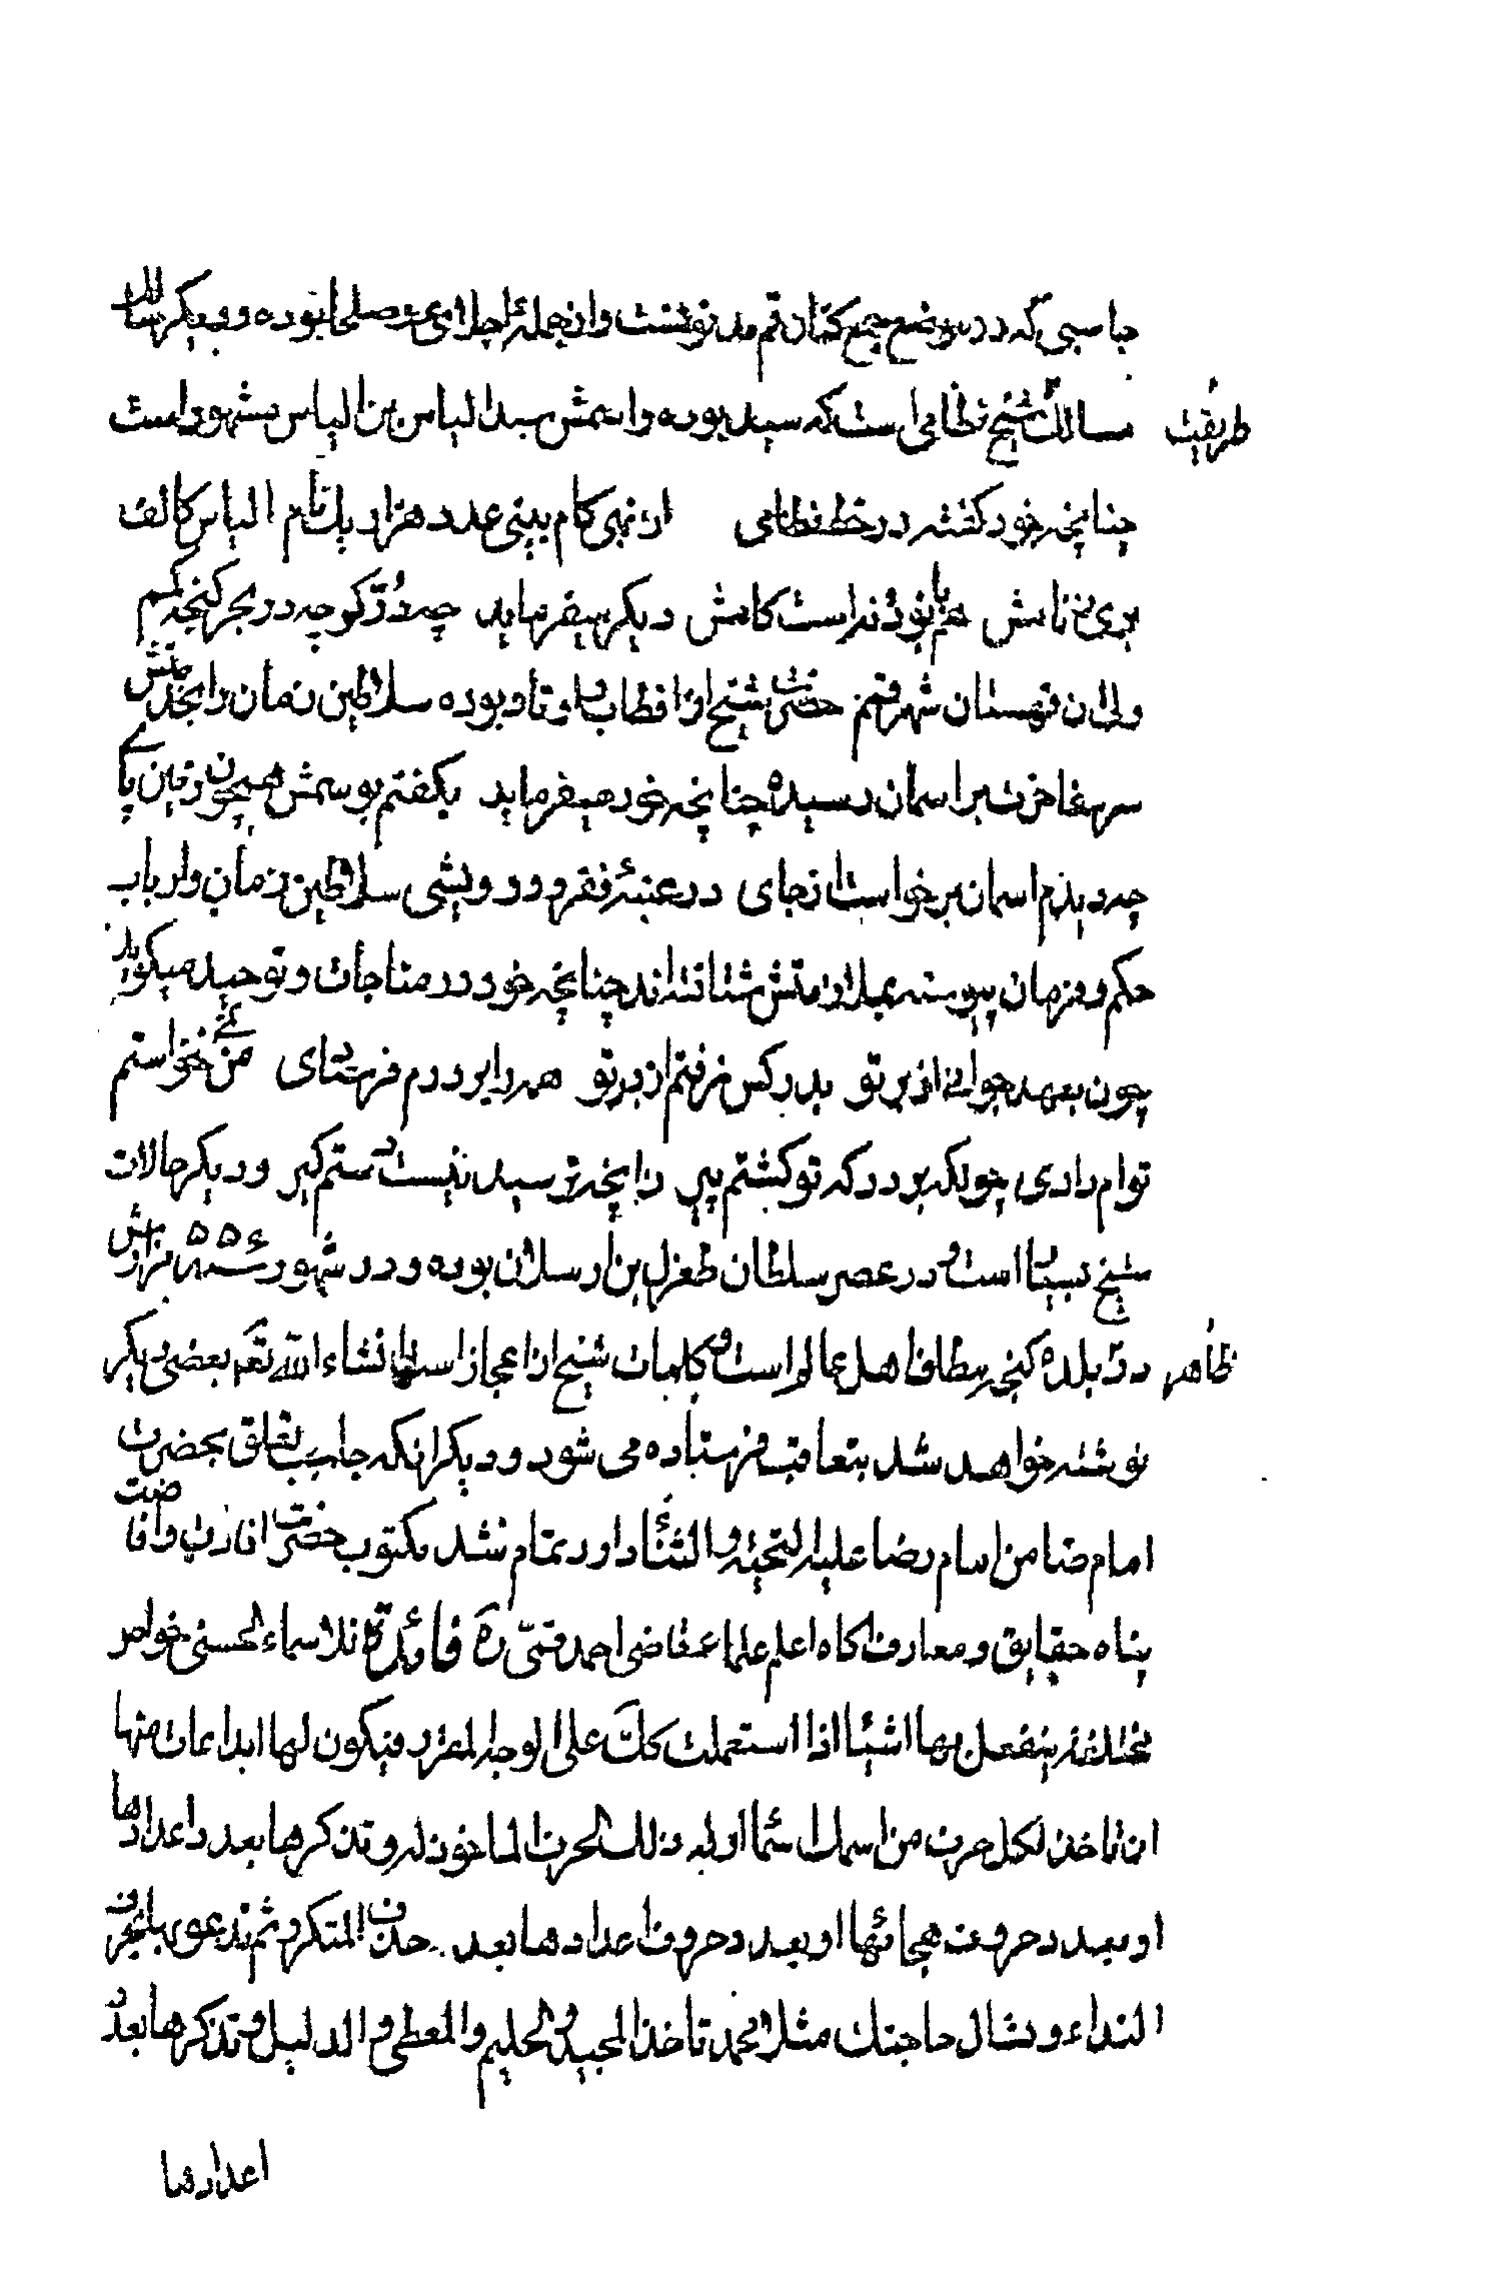 جاسبی که در موضع جمع کتمان قم مدنوشت و از جمله اجلا و صلحا بوده و دیگر سالک
طریقت مسالک شیخ نظامی است که سید بوده و اسمش سید الیاس بن الیاس مشهور است
چنانچه خود گفته در خط نظامی ار نهی گام بینی عدد هزار یک نام الیاس کالف
بری ز نامش هم با نود نه است کامش دیگر میفرماید چه دُرّ گرچه در بحر گنجه گمم
ولی از قهستان شهر قمم حضرت شیخ از اقطاب و اوتاد بوده سلاطین زمان را بخدمتش
سر مفاخرت بر اسمان رسیده چنانچه خود میفرماید بگفتم بوسمش همچون زمین پای
چه دیدم اسمان برخواست از جای در عتبهٔ فقر و درویشی سلاطین زمان و ارباب
حکم و فرمان پیوسته بملازمتش شتافته اند چنانچه خود در مناجات و توحید میگوید
چون بعهد جوانی از بر تو بدر کس نرفتم از در تو همه را بر درم فرستادی من نمی خواستم
توام دادی چونکه بر درگه تو گشتم پیر زانچه ترسیدنیست دستم گیر و دیگر حالات
شیخ بسیار است و در عصر سلطان طغرل بن ارسلان بوده و در شهور سنه ۵۵۶ مزارش
ظاهر در بلده گنجه مطاف اهل عالم است و کلمات شیخ از اعجاز است انشاء الله تعم بعضی دیگر
نوشته خواهد شد بتعاقب فرستاده می شود و دیگر انکه جاسب تعلق بحضرت
امام ضامن امام رضا علیه التحیّه و الثناء دارد تمام شد مکتوب حضرت افادت و افاضت
پناه حقایق و معارف اگاه اعلم علما قاضی احمد قمّی رَه فائدة ان للاسماء الحسنی خواص
مختلفة ینفعل بها اشیئا اذا استعملت کلّ علی الوجه المقرر فیکون لها ابداعات منها
ان تاخذ لکل حرف من اسمک اسما اوله ذلک الحرف الماخوذ له و تذکرها بعدد اعدادها
او بعدد حروف هجائها او بعدد حروف اعدادها بعد حذف المتکرر ثم تدعو بها بحرف
النداء و تسال حاجتک مثلا محمد تاخذ المجید و الحلیم و المعطی و الدلیل و تذکرها بعدد
اعدادها